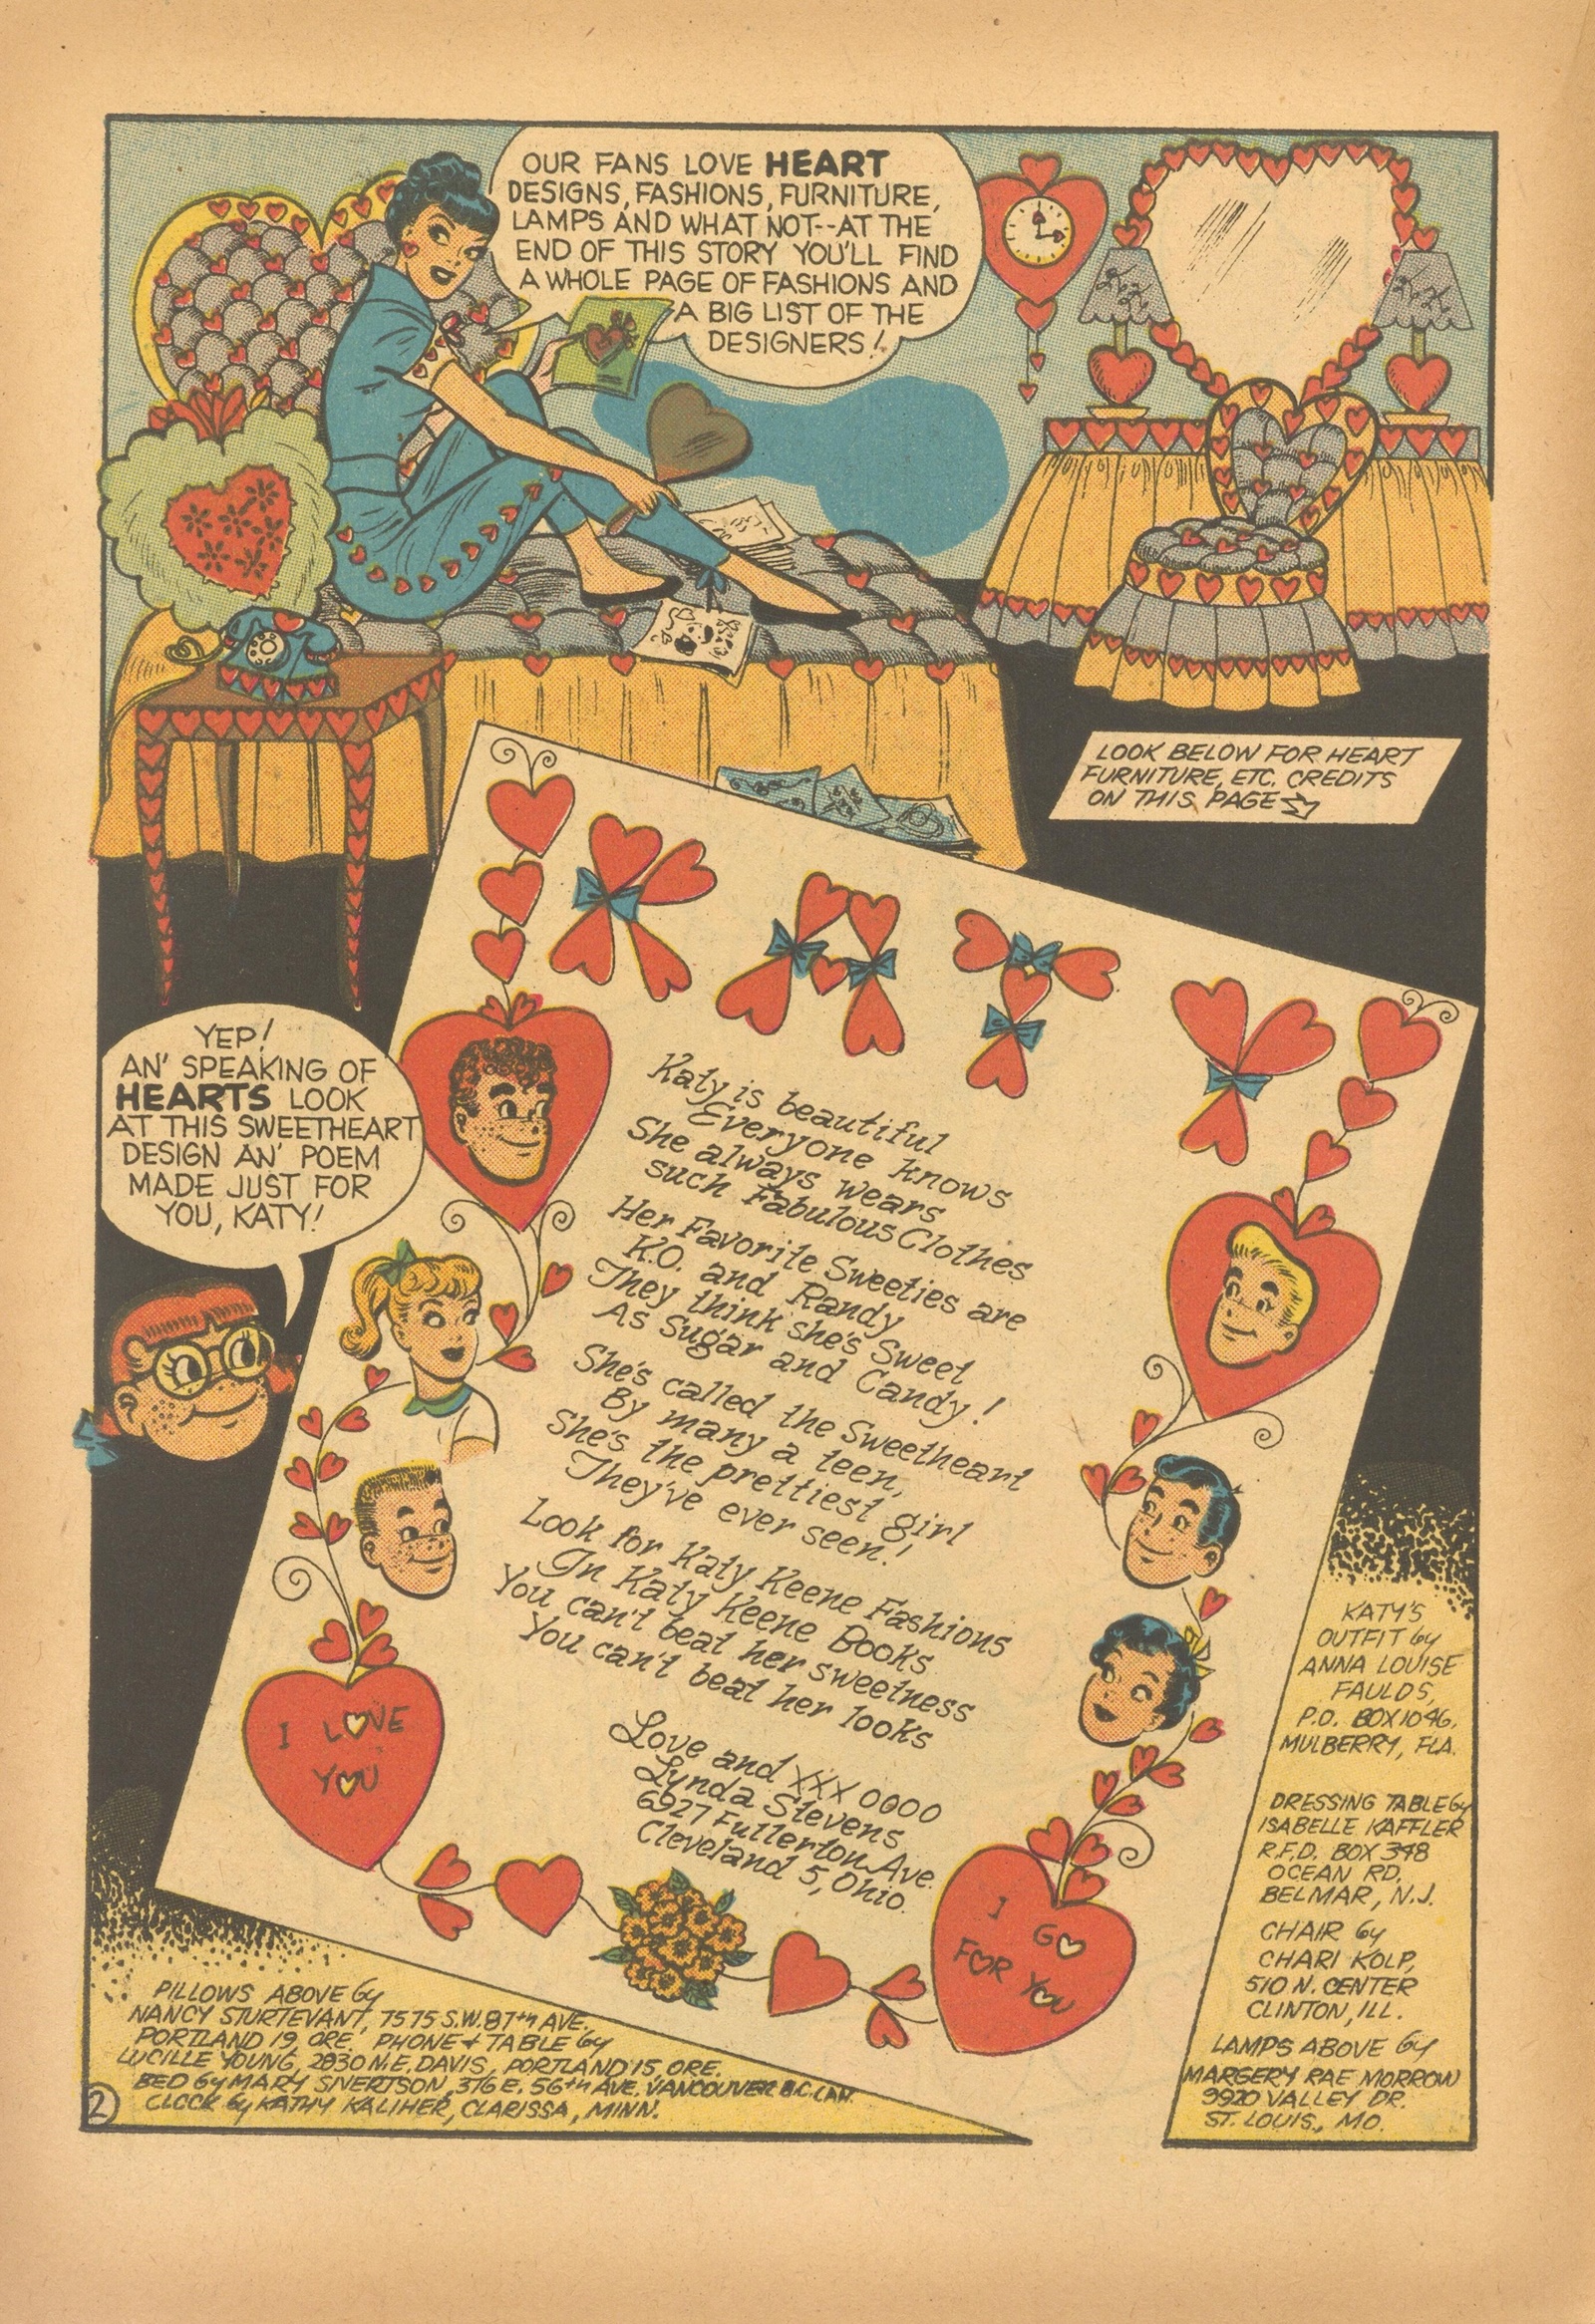 OUR FANS LOVE HEART
DESIGNS, FASHIONS, FURNITURE,
LAMPS AND WHAT NOT--AT THE
END OF THIS STORY YOU'LL FIND
A WHOLE PAGE OF FASHIONS AND
A BIG LIST OF THE
DESIGNERS!
LOOK BELOW FOR HEART
FURNITURE, ETC. CREDITS
ON THIS PAGE
YEP!
AN' SPEAKING OF
HEARTS LOOK
AT THIS SWEETHEART
DESIGN AN' POEM
MADE JUST FOR
YOU, KATY!
KATY
Katy is beautiful
Everyone knows
She always wears
such Fabulous Clothes
Her Favorite Sweeties are
K.O. and Randy
They think she's Sweet
As Sugar and Candy!
She's called the Sweetheart
By many a teen,
She's the prettiest girl
They've ever seen!
Look for Katy Keene Fashions
In Katy Keene Books
You can't beat her sweetness
You can't beat her looks
Love and XXX OOOO
Lynda Stevens
6927 Fullerton Ave.
Cleveland 5, Ohio.
I LOVE
YOU
I GO
FOR YOU
KATY'S
OUTFIT by
ANNA LOUISE
FAULDS,
P.O. BOX 1046,
MULBERRY, FLA.
DRESSING TABLE by
ISABELLE KAFFLER
R.F.D. BOX 348
OCEAN RD,
BELMAR, N.J.
CHAIR by
CHARI KOLP,
510 N. CENTER
CLINTON, ILL.
LAMPS ABOVE by
MARGERY RAE MORROW
9920 VALLEY DR.
ST. LOUIS, MO.
PILLOWS ABOVE by
NANCY STURTEVANT, 7575 S.W. 87th AVE.,
PORTLAND 19, ORE. PHONE + TABLE by
LUCILLE YOUNG, 2830 N.E. DAVIS, PORTLAND 15, ORE.
BED by MARY SIVERTSON, 376 E. 56th AVE. VANCOUVER B.C. CAN.
CLOCK by KATHY KALIHER, CLARISSA, MINN.
2